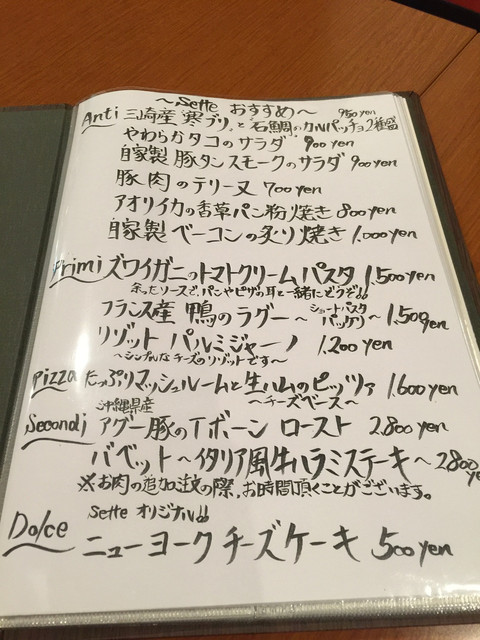 ～Sette おすすめ～
Anti 三崎産"寒ブリ"と石鯛のカルパッチョ2種盛 950yen
やわらかタコのサラダ 900yen
自家製 豚タンスモークのサラダ 900yen
豚肉のテリーヌ 700yen
アオリイカの香草パン粉焼き 800yen
自家製 ベーコンの炙り焼き 1,000yen
Primi ズワイガニのトマトクリームパスタ 1,500yen
余ったソースで、パンやピザの耳と一緒にどうぞ!!
フランス産 鴨のラグー～ショートパスタ パッケリ～ 1,500yen
リゾット パルミジャーノ 1,200yen
～シンプルなチーズのリゾットです～
Pizza たっぷりマッシュルームと生ハムのピッツァ 1,600yen
～チーズベース～
沖縄県産
Secondi アグー豚のTボーン ロースト 2,800yen
バベット～イタリア風牛ハラミステーキ～ 2,800ye
※お肉の追加注文の際、お時間頂くことがございます。
Sette オリジナル!!
Dolce ニューヨークチーズケーキ 500yen